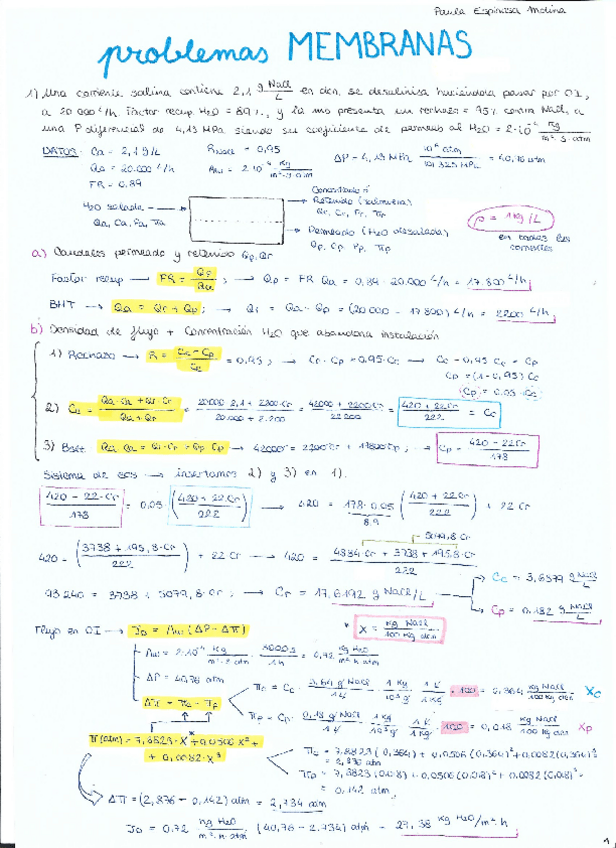 Paula Espinosa Molina
problemas MEMBRANAS
1) Una corriente salina contiene 2,1 g NaCl/L en dcn, se desaliniza haciéndola pasar por OI,
a 20 000 L/h, factor recup. H2O = 89%, y la mo presenta un rechazo = 95% contra NaCl, a
una P diferencial de 4,13 MPa siendo su coeficiente de permeab al H2O = 2·10⁻⁴ kg/m²·s·atm
DATOS: Ca = 2,1 g/L RNaCl = 0,95 ΔP = 4,13 MPa
Qa = 20.000 L/h Aw = 2·10⁻⁴ kg/m²·s·atm = 40,76 atm
FR = 0.89
H2O salada
Qa, Ca, Pa, πa
Concentrado o
Retenido (salmuera)
Qr, Cr, Pr, πr
Permeado (H2O desalada)
Qp, Cp, Pp, πp
ρ = 1 kg/L
en todas las corrientes
a) Caudales permeado y retenido Qp, Qr
Factor recup → FR = Qp/Qa ; → Qp = FR · Qa = 0.89 · 20.000 L/h = 17.800 L/h
BHT → Qa = Qr + Qp ; → Qr = Qa - Qp = (20 000 - 17 800) L/h = 2200 L/h
b) Densidad de flujo + Concentración H2O que abandona instalación
1) Rechazo → R = (Cc - Cp)/Cc = 0,95 ; → Cc - Cp = 0.95·Cc → Cc - 0,95 Cc = Cp
Cp = (1 - 0,95) Cc
Cp = 0.05·Cc
2) Cc = (Qa·Ca + Qr·Cr)/(Qa + Qr) = (20000·2,1 + 2200·Cr)/(20.000 + 2.200) = (42000 + 2200·Cr)/22200 = (420 + 22Cr)/222 = Cc
3) Qa·Ca = Qr·Cr + Qp·Cp → 42000 = 2200·Cr + 17800·Cp ; → Cp = (420 - 22Cr)/178
Sistema de ecs → insertamos 2) y 3) en 1).
(420 - 22·Cr)/178 = 0.05 (420 + 22·Cr)/222 → 420 = 178·0.05 ((420 + 22Cr)/222) + 22Cr
8.9
5079,8·Cr
420 = ((3738 + 195,8·Cr)/222) + 22Cr → 420 = (4884·Cr + 3738 + 195.8·Cr)/222
93.240 = 3738 + 5079,8·Cr ; → Cr = 17.6192 g NaCl/L
Cc = 3,6379 g NaCl/L
Cp = 0.182 g NaCl/L
Flujo en OI → Jw = Aw (ΔP - Δπ)
* X = kg NaCl/100 kg dcn
Aw = 2·10⁻⁴ kg/m²·s·atm · 3600 s/1 h = 0,72 kg H2O/m²·h·atm
ΔP = 40,76 atm
Δπ = πc - πp
πc = Cc = 3,64 g NaCl/1 L · 1 kg/10³ g · 1 L/1 kg · 100 = 0,364 kg NaCl/100 kg dcn Xc
πp = Cp = 0.18 g NaCl/1 L · 1 kg/10³ g · 1 L/1 kg · 100 = 0,018 kg NaCl/100 kg dcn Xp
π(atm) = 7,8823·X* + 0,0506 X² +
+ 0,0082·X³
πc = 7,8823 (0,364) + 0,0506 (0,364)² + 0.0082 (0,364)³
= 2,876 atm
πp = 7,8823 (0.018) + 0.0506 (0,018)² + 0.0082 (0.018)³
= 0,142 atm
Δπ = (2,876 - 0,142) atm = 2,734 atm
Jw = 0.72 kg H2O/m²·h·atm (40,76 - 2.734) atm = 27,38 kg H2O/m²·h
1